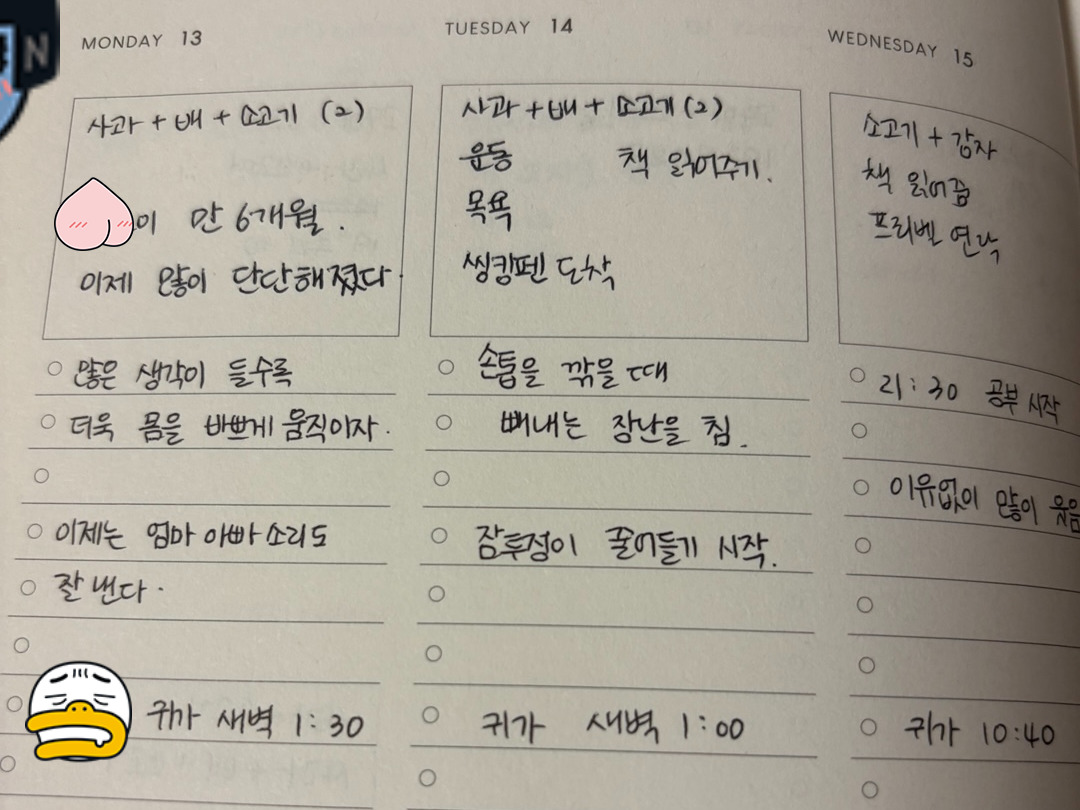 N
MONDAY 13
사과 + 배 + 소고기 (2)
이 만 6개월.
이제 많이 단단해졌다.
많은 생각이 들수록
더욱 몸을 바쁘게 움직이자.
이제는 엄마 아빠 소리도
잘 낸다.
귀가 새벽 1:30
TUESDAY 14
사과 + 배 + 소고기 (2)
운동 책 읽어주기.
목욕
씽캉펜 도착
손톱을 깎을 때
빼내는 장난을 침.
잠투정이 줄어들기 시작.
귀가 새벽 1:00
WEDNESDAY 15
소고기 + 감자
책 읽어줌
프리벨 연락
21:30 공부 시작
이유없이 많이 웃음
귀가 10:40